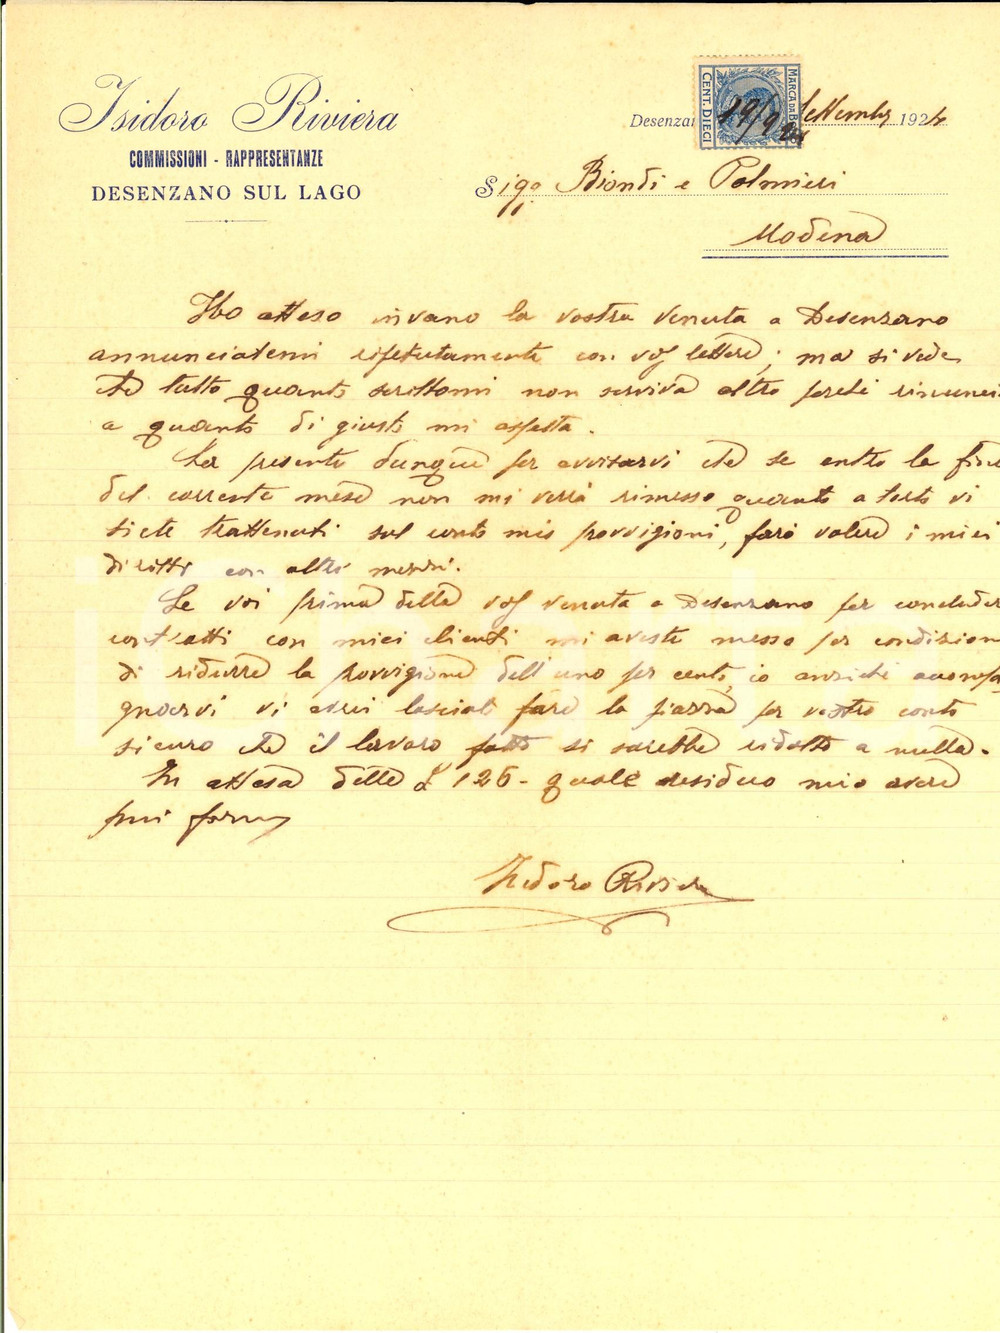 Isidoro Riviera
COMMISSIONI - RAPPRESENTANZE
DESENZANO SUL LAGO
Desenzan
Settembre 1924
CENT. DIECI
MARCA DA BO
19/9/24
Sigg. Biondi e Palmieri
Modena
Ho atteso invano la vostra venuta a Desenzano
annunciatemi ripetutamente con vos lettere; ma si vede
che tutto quanto scrittomi non serviva altro perchè rinunci
a quanto di giusto mi aspetta.
La presente dunque per avvisarvi che se entro la fine
del corrente mese non mi verrà rimesso quanto a torto vi
siete trattenuti sul conto mio provvigioni, farò valere i miei
diritti con altri mezzi.
Se voi prima della vos venuta a Desenzano per concludere
contratti con miei clienti mi aveste messo per condizione
di ridurre la provvigione dell'uno per cento, io anzichè accompa
gnarvi vi avrei lasciato fare la piazza per vostro conto
sicuro che il lavoro fatto si sarebbe ridotto a nulla.
In attesa delle £ 126 - quale residuo mio avere
Isidoro Riviera